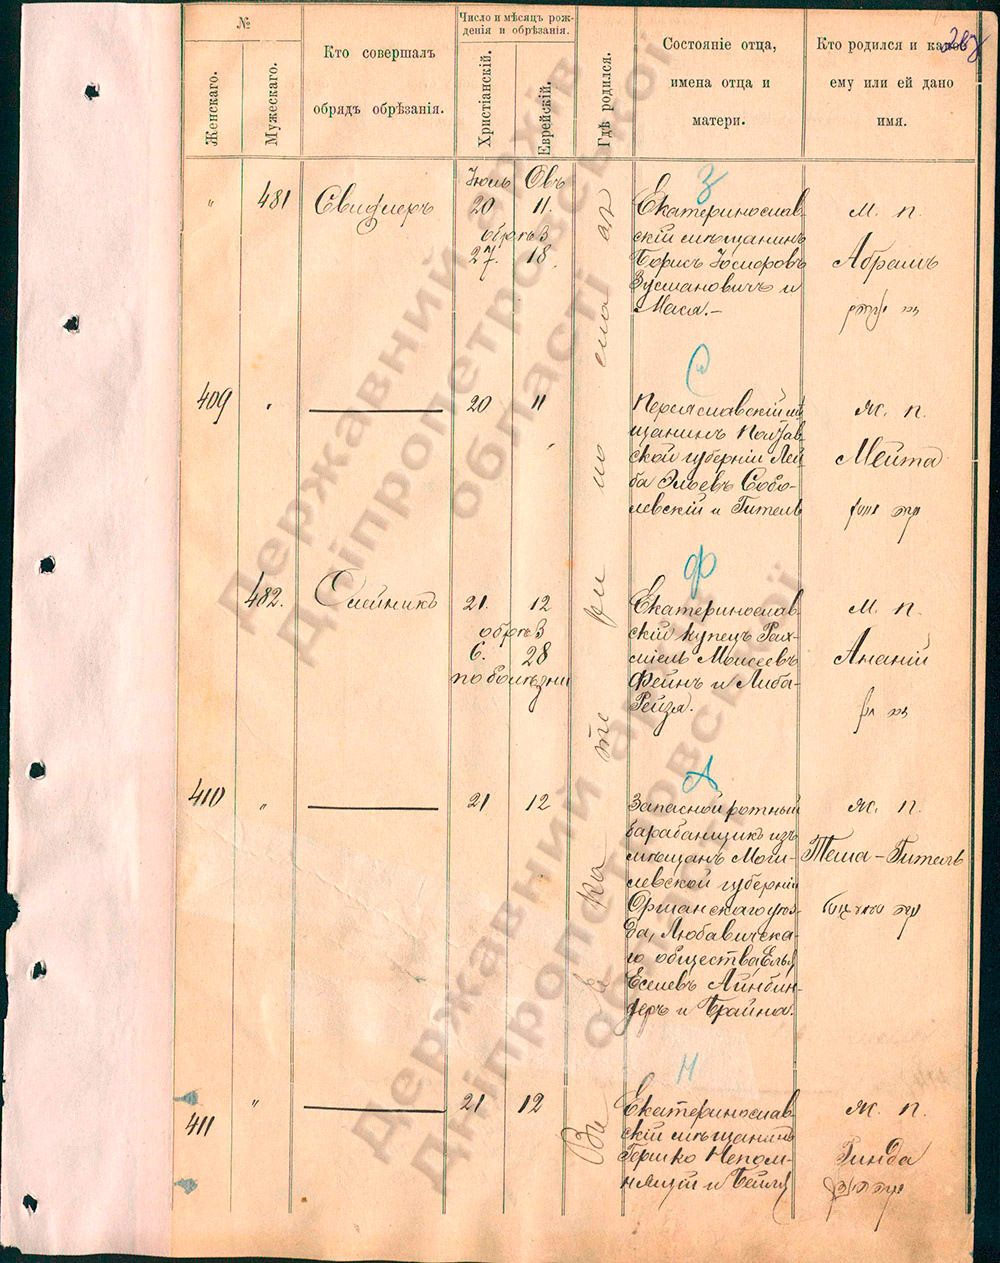 №
Женскаго.
Мужескаго.
Кто совершалъ
обрядъ обрѣзанія.
Число и мѣсяцъ рож-
денія и обрѣзанія.
Христіанскій.
Еврейскій.
Гдѣ родился.
Состояніе отца,
имена отца и
матери.
Кто родился и каков
ему или ей дано
имя.
Въ Екатеринославѣ
З
„ 481 Свидлеръ
Іюль Овъ
20 11.
обрѣз
27. 18.
Екатеринослав-
скій мѣщанинъ
Борисъ Іосифовъ
Зусмановичъ и
Мася.–
м. п.
Абрамъ
С
409 „ 20 11
Переяславскій мѣ
щанинъ Полтав-
ской губерніи Лей-
ба Эльевъ Собо-
левскій и Гитель
ж. п.
Мейта
Ф
482. Олейникъ
21. 12
обрѣз
6. 28
по болѣзни
Екатеринослав-
скій купецъ Рах-
міель Моисеевъ
Фейнъ и Либа-
Рейза.
м. п.
Ананій
А
410 „ 21 12
Запасной ротный
барабанщикъ изъ
мѣщанъ Моги-
левской губерніи
Оршанскаго уѣз-
да, Любавичска-
го общества Ель
Еселевъ Айнбин-
деръ и Брайна.
ж. п.
Теша-Гитель
Н
411 „ 21 12
Екатеринослав-
скій мѣщанинъ
Гершко Непом-
нящій и Бейля
ж. п.
Гинда
Державний архів
Дніпропетровської
області
Державний архів
Дніпропетровської
області